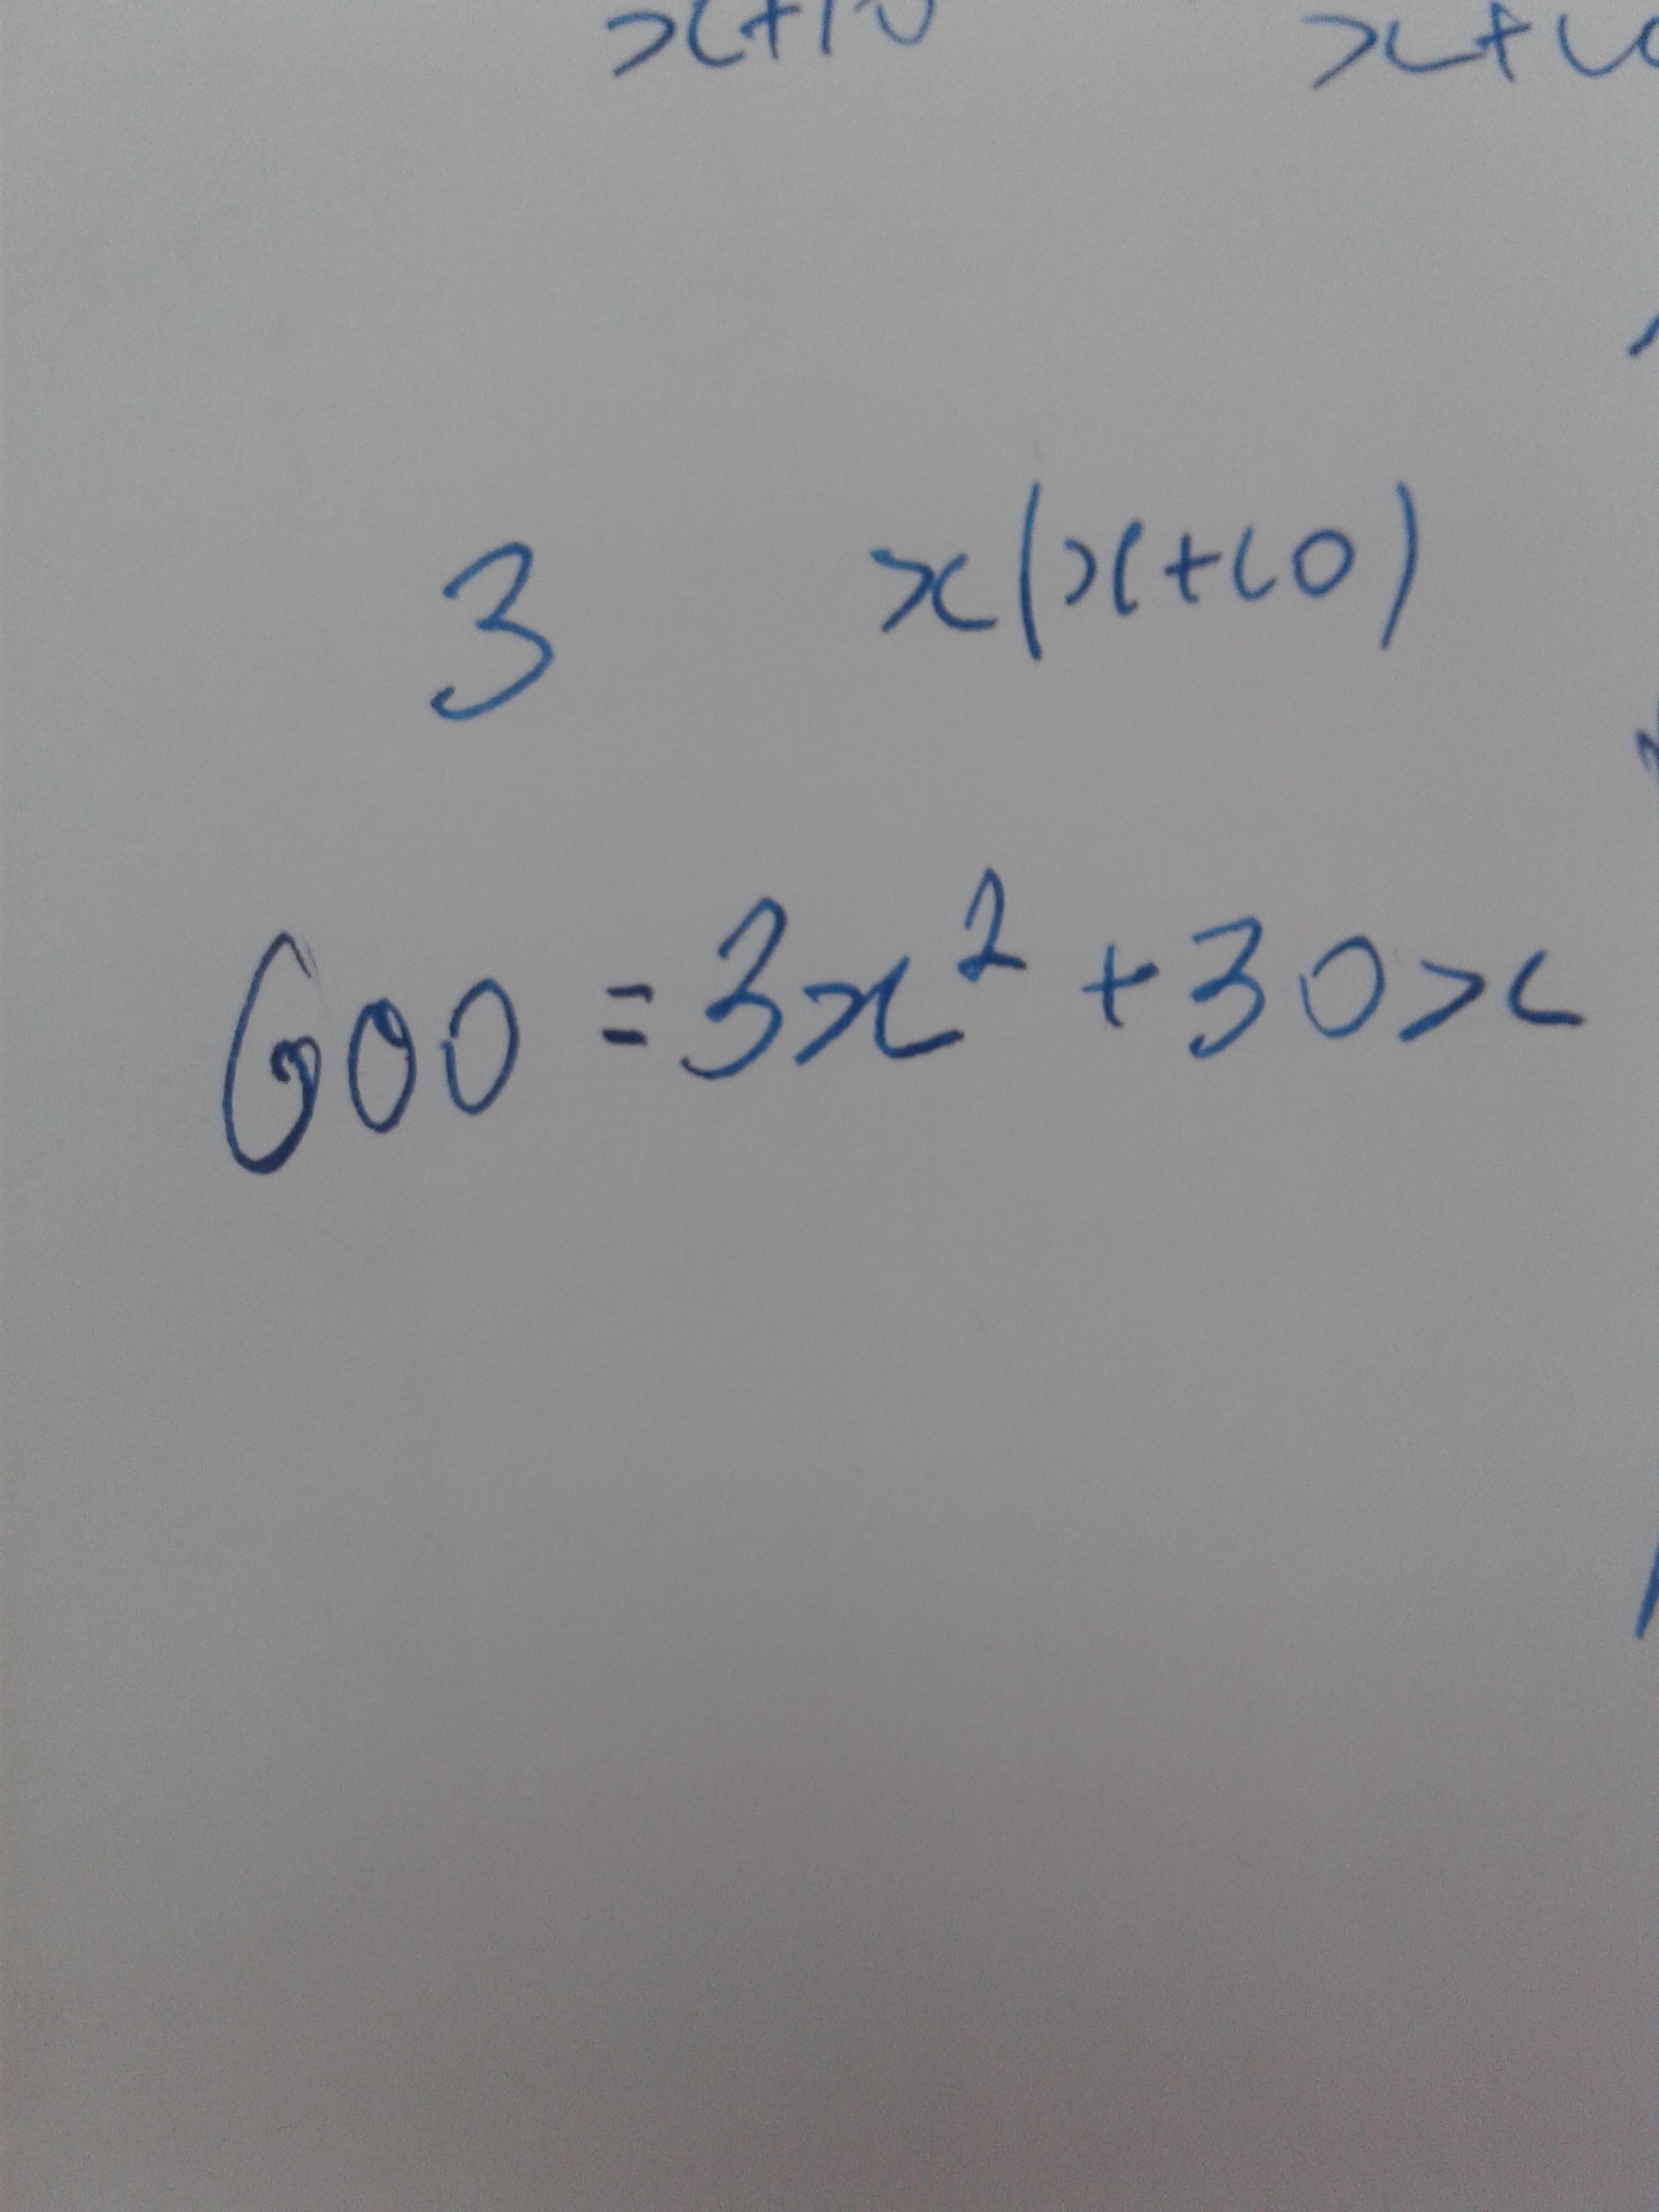 x+10 x+10
3 x(x+10)
600 = 3x² + 30x